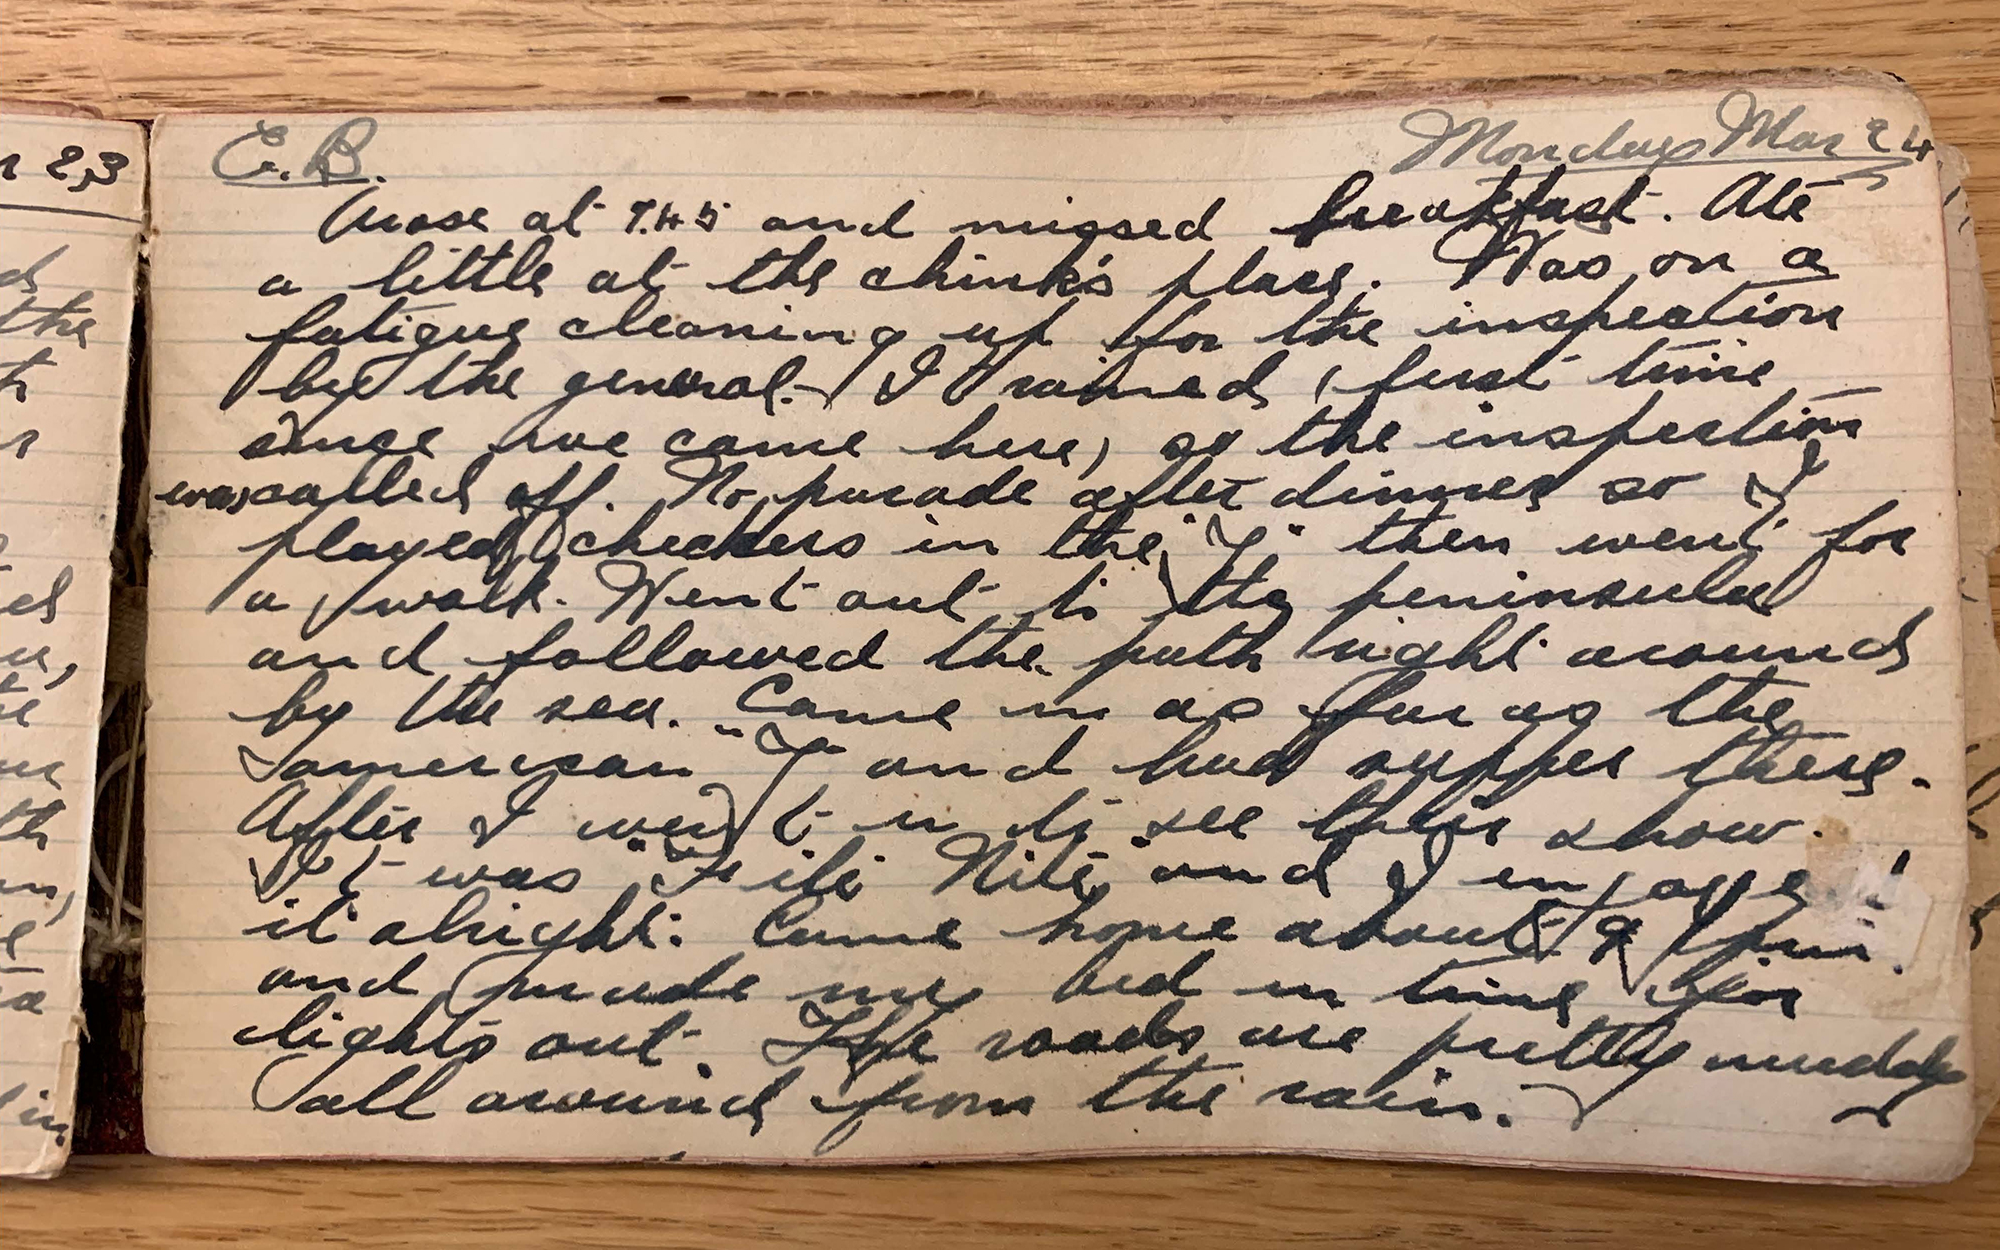 r 23
E. B.
Monday Mar 24
Arose at 7.45 and missed breakfast. Ate
a little at the chink's place. Was on a
fatigue cleaning up for the inspection
by the general. I rained, first time
since we came here, so the inspection
was called off. No parade after dinner so I
played checkers in the "Y" then went for
a walk. Went out to the peninsula
and followed the path right around
by the sea. Came in as far as the
american "Y" and had supper there.
After I went in to see their show.
It was "Fife Nite" and I enjoyed
it alright. Came home about 9 pm.
and made my bed in time for
lights out. The roads are pretty muddy
all around from the rain.